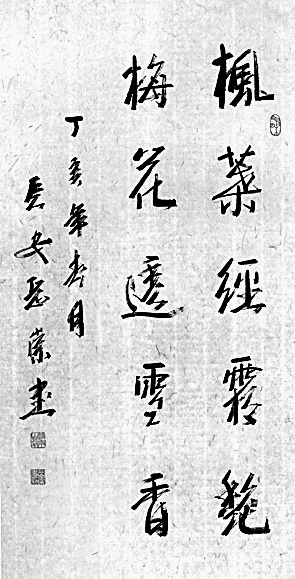 楓葉經霜艷
梅花透雪香
丁亥年春月
長安思崇書